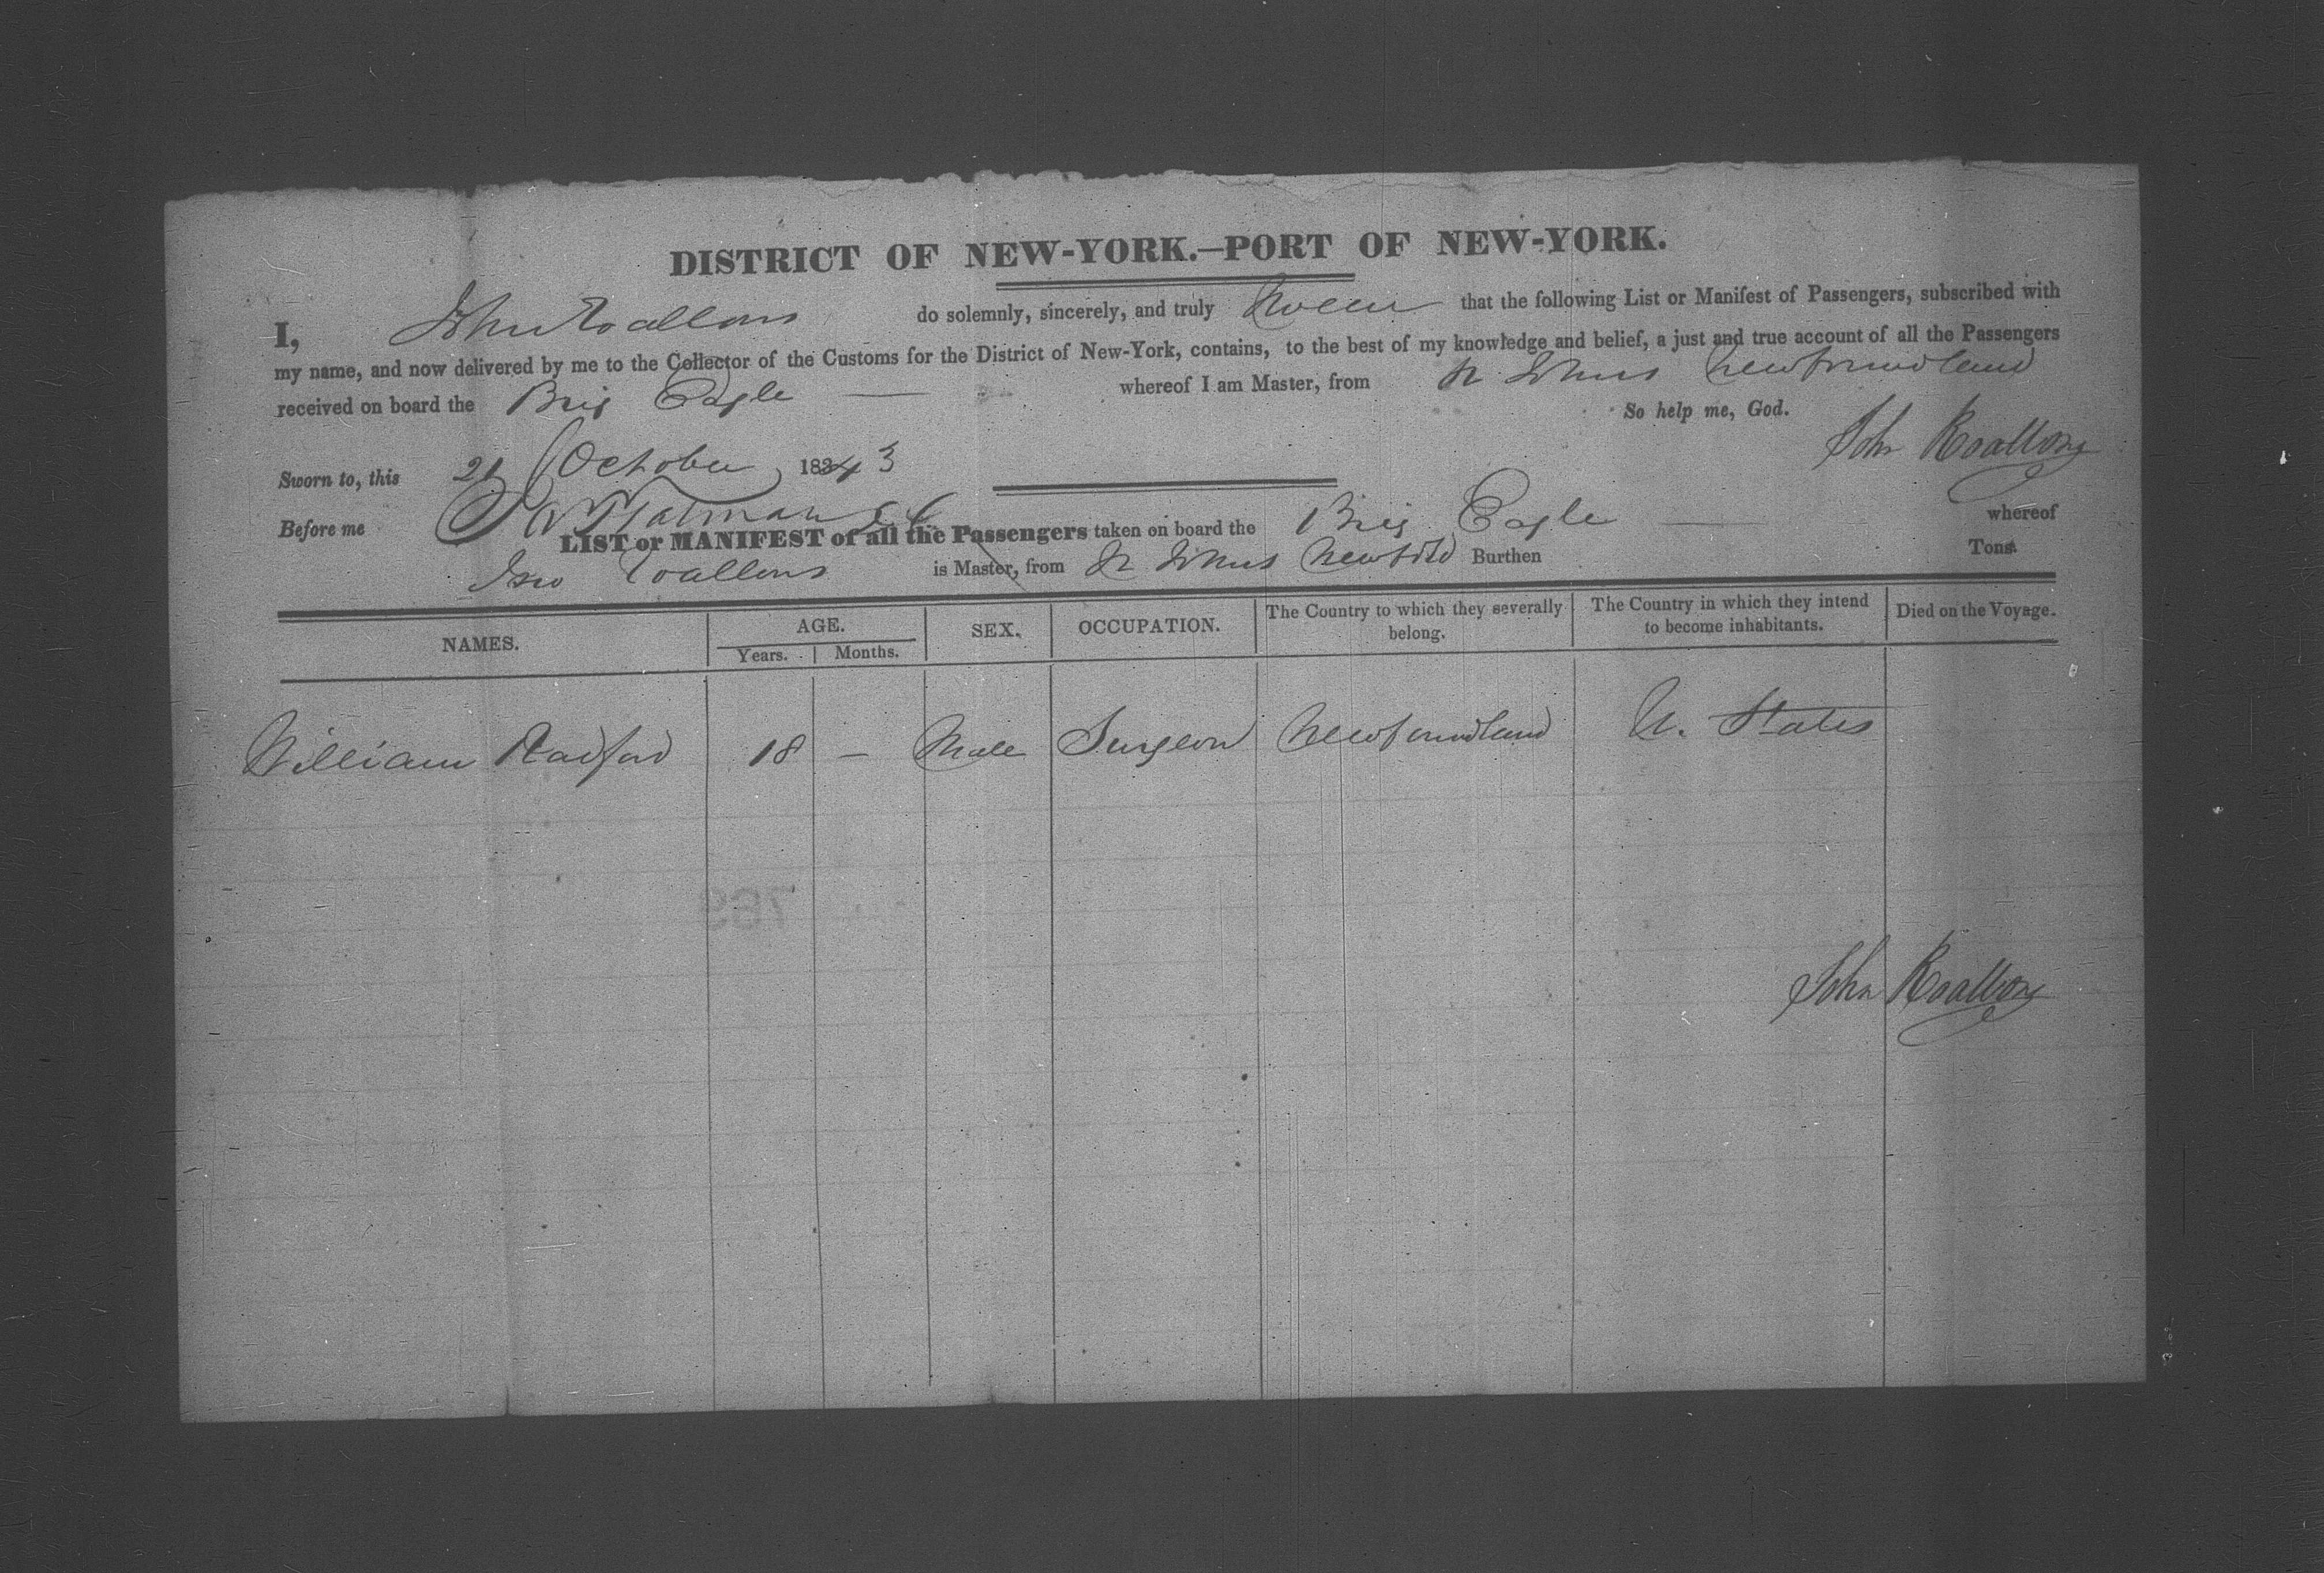 DISTRICT OF NEW-YORK.—PORT OF NEW-YORK.
I, John Roallons do solemnly, sincerely, and truly swear that the following List or Manifest of Passengers, subscribed with
my name, and now delivered by me to the Collector of the Customs for the District of New-York, contains, to the best of my knowledge and belief, a just and true account of all the Passengers
received on board the Brig Eagle — whereof I am Master, from St Johns Newfoundland
So help me, God.
John Roallons
Sworn to, this 21 October 1843
Before me
LIST or MANIFEST of all the Passengers taken on board the Brig Eagle — whereof
Jno Roallons is Master, from St Johns Newfdld Burthen Tons.
NAMES. AGE. SEX. OCCUPATION. The Country to which they severally belong. The Country in which they intend to become inhabitants. Died on the Voyage.
Years. Months.
William Radford 18 — Male Surgeon Newfoundland U. States
John Roallons